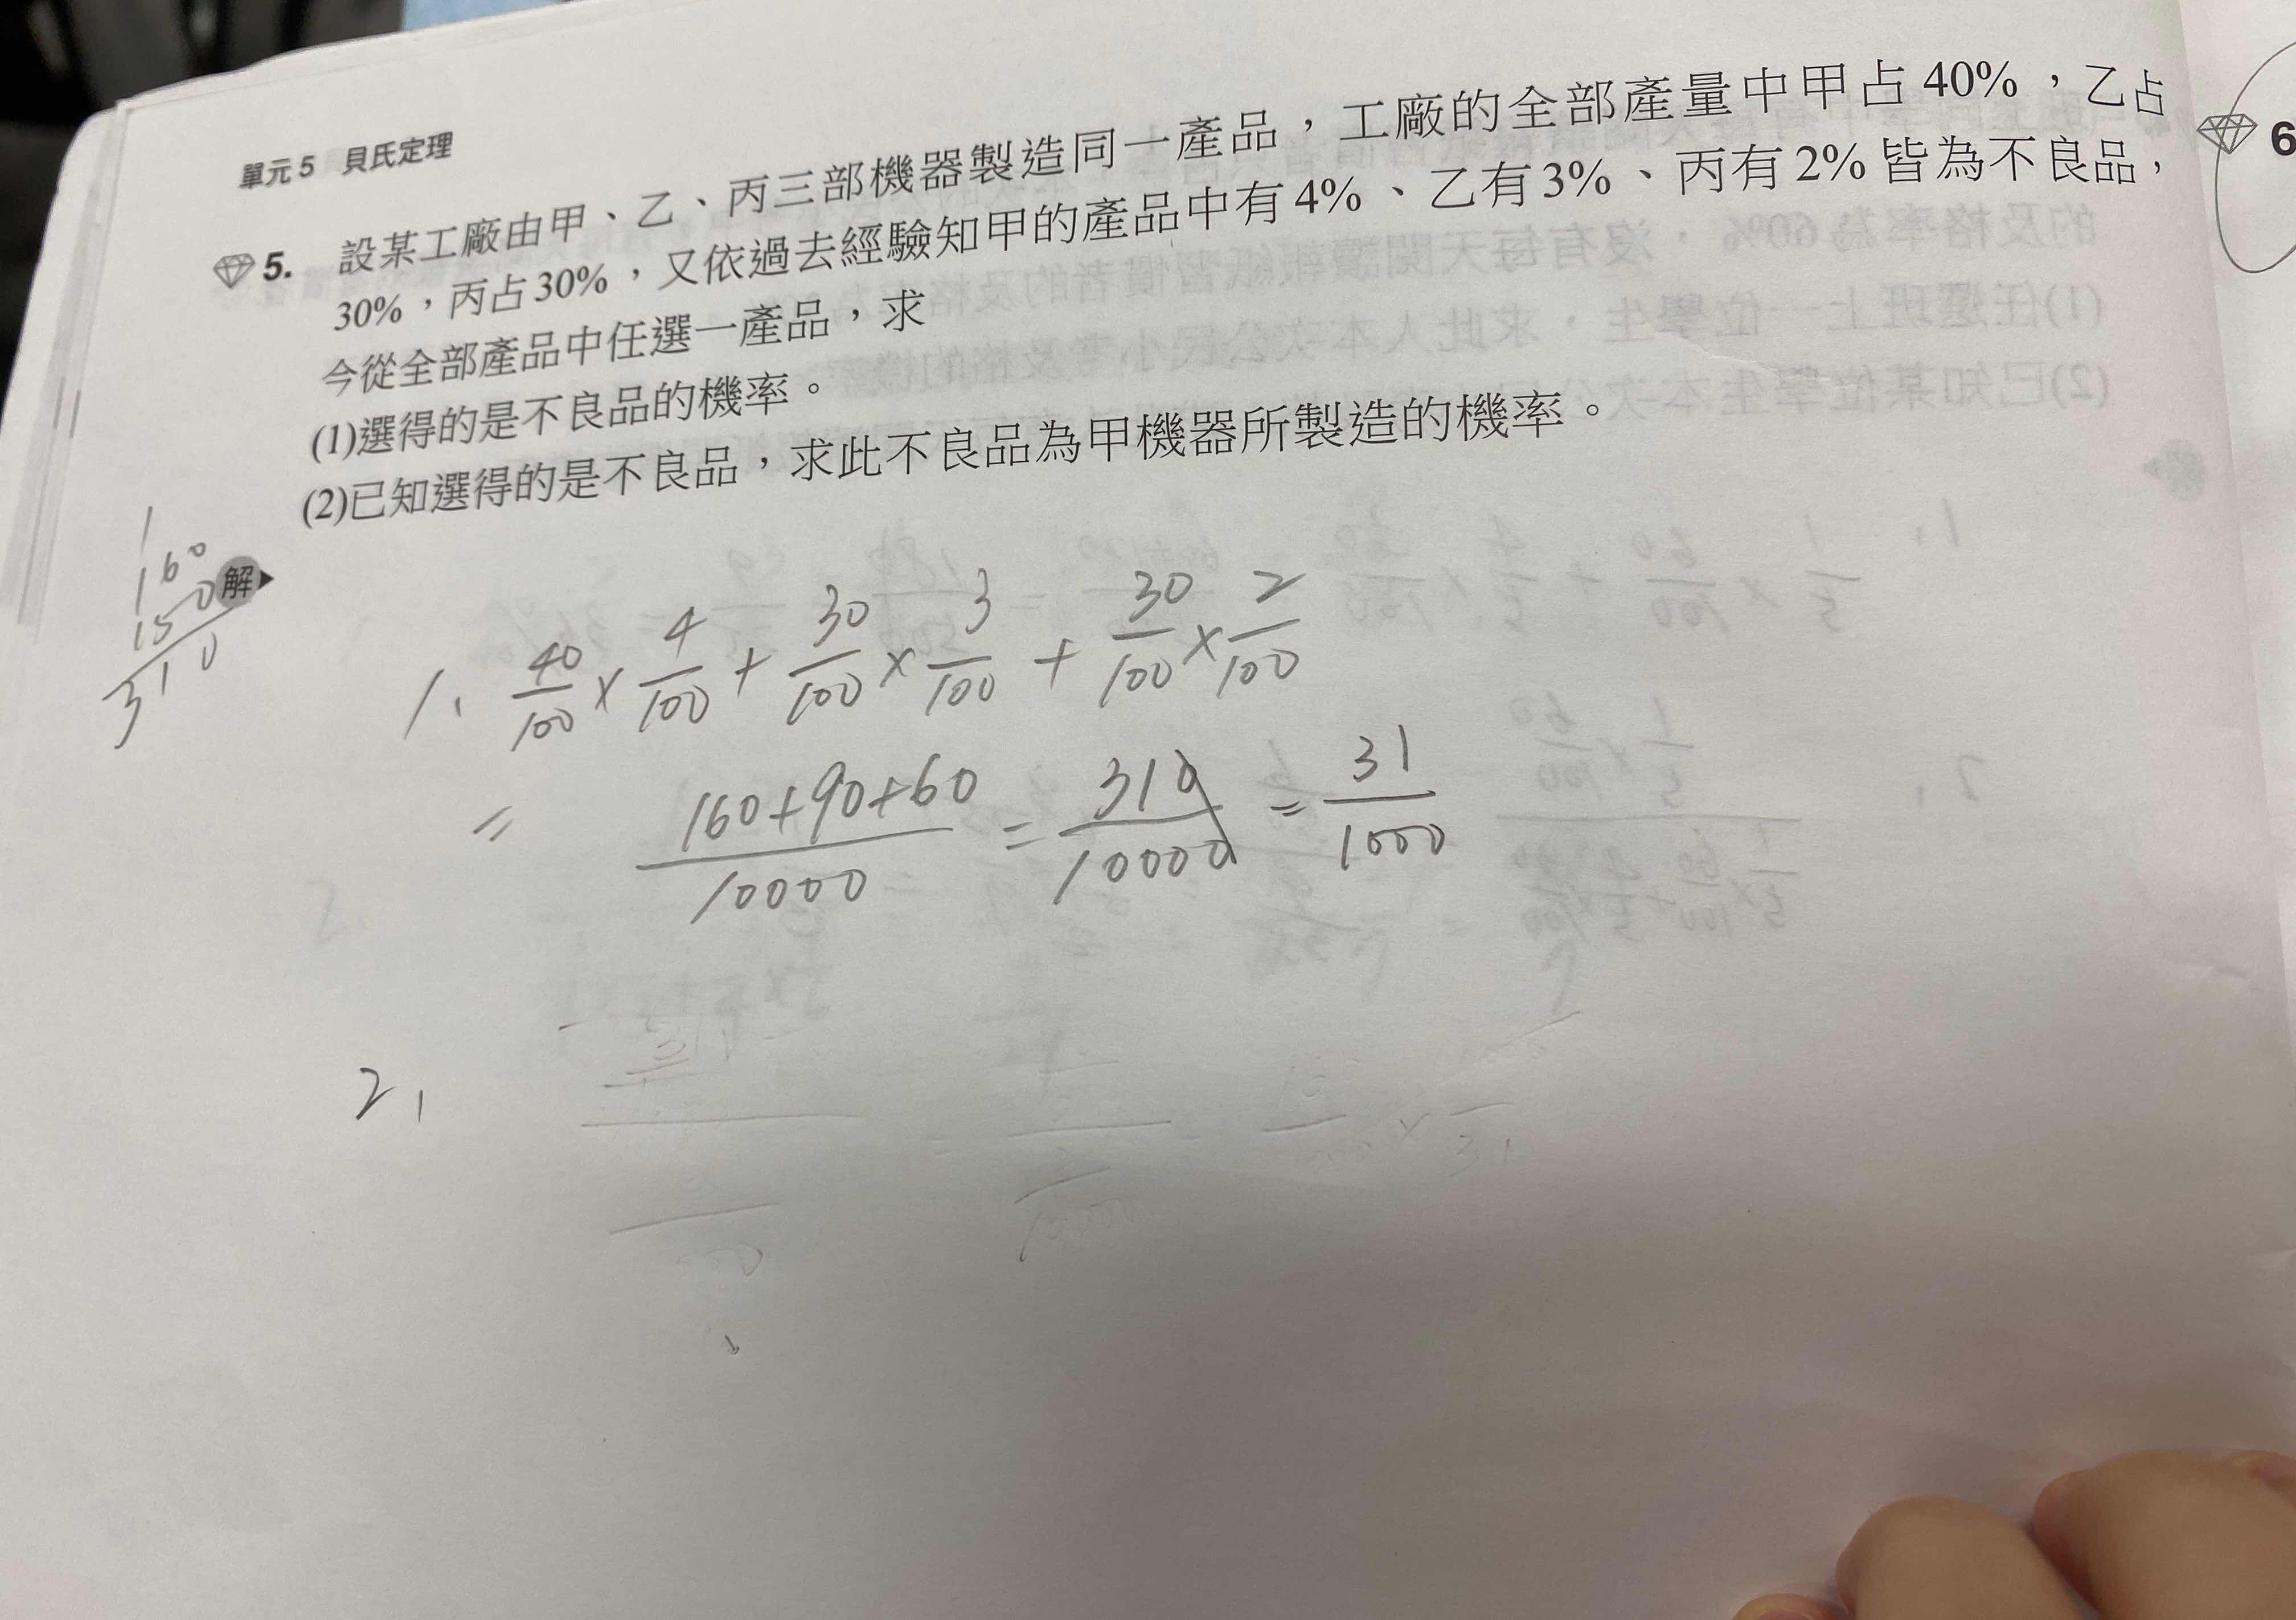 單元5 貝氏定理
5. 設某工廠由甲、乙、丙三部機器製造同一產品，工廠的全部產量中甲占40%，乙占
30%，丙占30%，又依過去經驗知甲的產品中有4%、乙有3%、丙有2%皆為不良品，
今從全部產品中任選一產品，求
(1)選得的是不良品的機率。
(2)已知選得的是不良品，求此不良品為甲機器所製造的機率。
6
解
160
150
310
1、 40/100 × 4/100 + 30/100 × 3/100 + 30/100 × 2/100
= 160+90+60/10000 = 310/10000 = 31/1000
2、